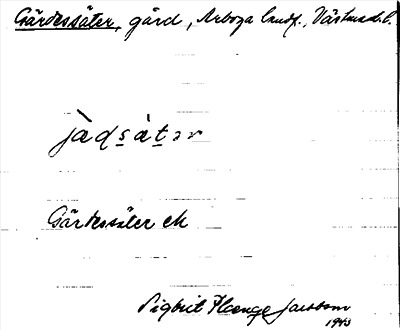 Gärdessäter, gård, Arboga landsf., Västmanl. l.
jàqsàtər
Gärdessäter ek
Sigbrit Plænge Jacobson
1943